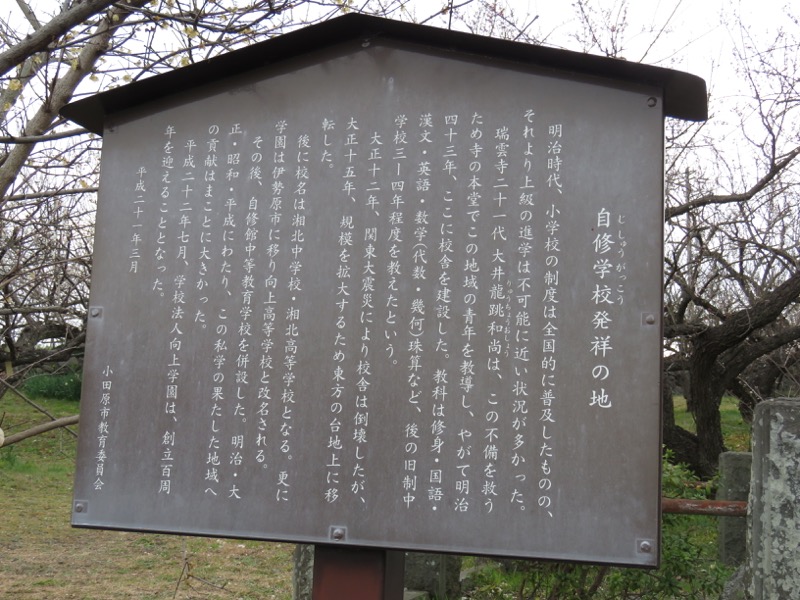 自修学校発祥の地
じしゅうがっこう
明治時代、小学校の制度は全国的に普及したものの、
それより上級の進学は不可能に近い状況が多かった。
瑞雲寺二十一代 大井龍跳和尚は、この不備を救う
りゅうちょうおしょう
ため寺の本堂でこの地域の青年を教導し、やがて明治
四十三年、ここに校舎を建設した。教科は修身・国語・
漢文・英語・数学(代数・幾何)珠算など、後の旧制中
学校三―四年程度を教えたという。
大正十二年、関東大震災により校舎は倒壊したが、
大正十五年、規模を拡大するため東方の台地上に移
転した。
後に校名は湘北中学校・湘北高等学校となる。更に
学園は伊勢原市に移り向上高等学校と改名される。
その後、自修館中等教育学校を併設した。明治・大
正・昭和・平成にわたり、この私学の果たした地域へ
の貢献はまことに大きかった。
平成二十二年七月、学校法人向上学園は、創立百周
年を迎えることとなった。
平成二十一年三月
小田原市教育委員会